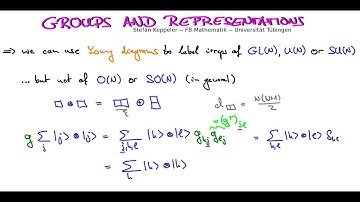 GROUPS AND REPRESENTATIONS
Stefan Keppeler -- FB Mathematik -- Universität Tübingen
⇒ we can use Young diagrams to label irreps of GL(N), U(N) or SU(N)
... but not of O(N) or SO(N) (in general)
□ ⊗ □ = □□ ⊕ d□□ = N(N+1)/2
= (gᵀ)jℓ
g ∑j |j⟩ ⊗ |j⟩ = ∑j,k,ℓ |k⟩ ⊗ |ℓ⟩ gkj gℓj = ∑k,ℓ |k⟩ ⊗ |ℓ⟩ δkℓ
= ∑k |k⟩ ⊗ |k⟩